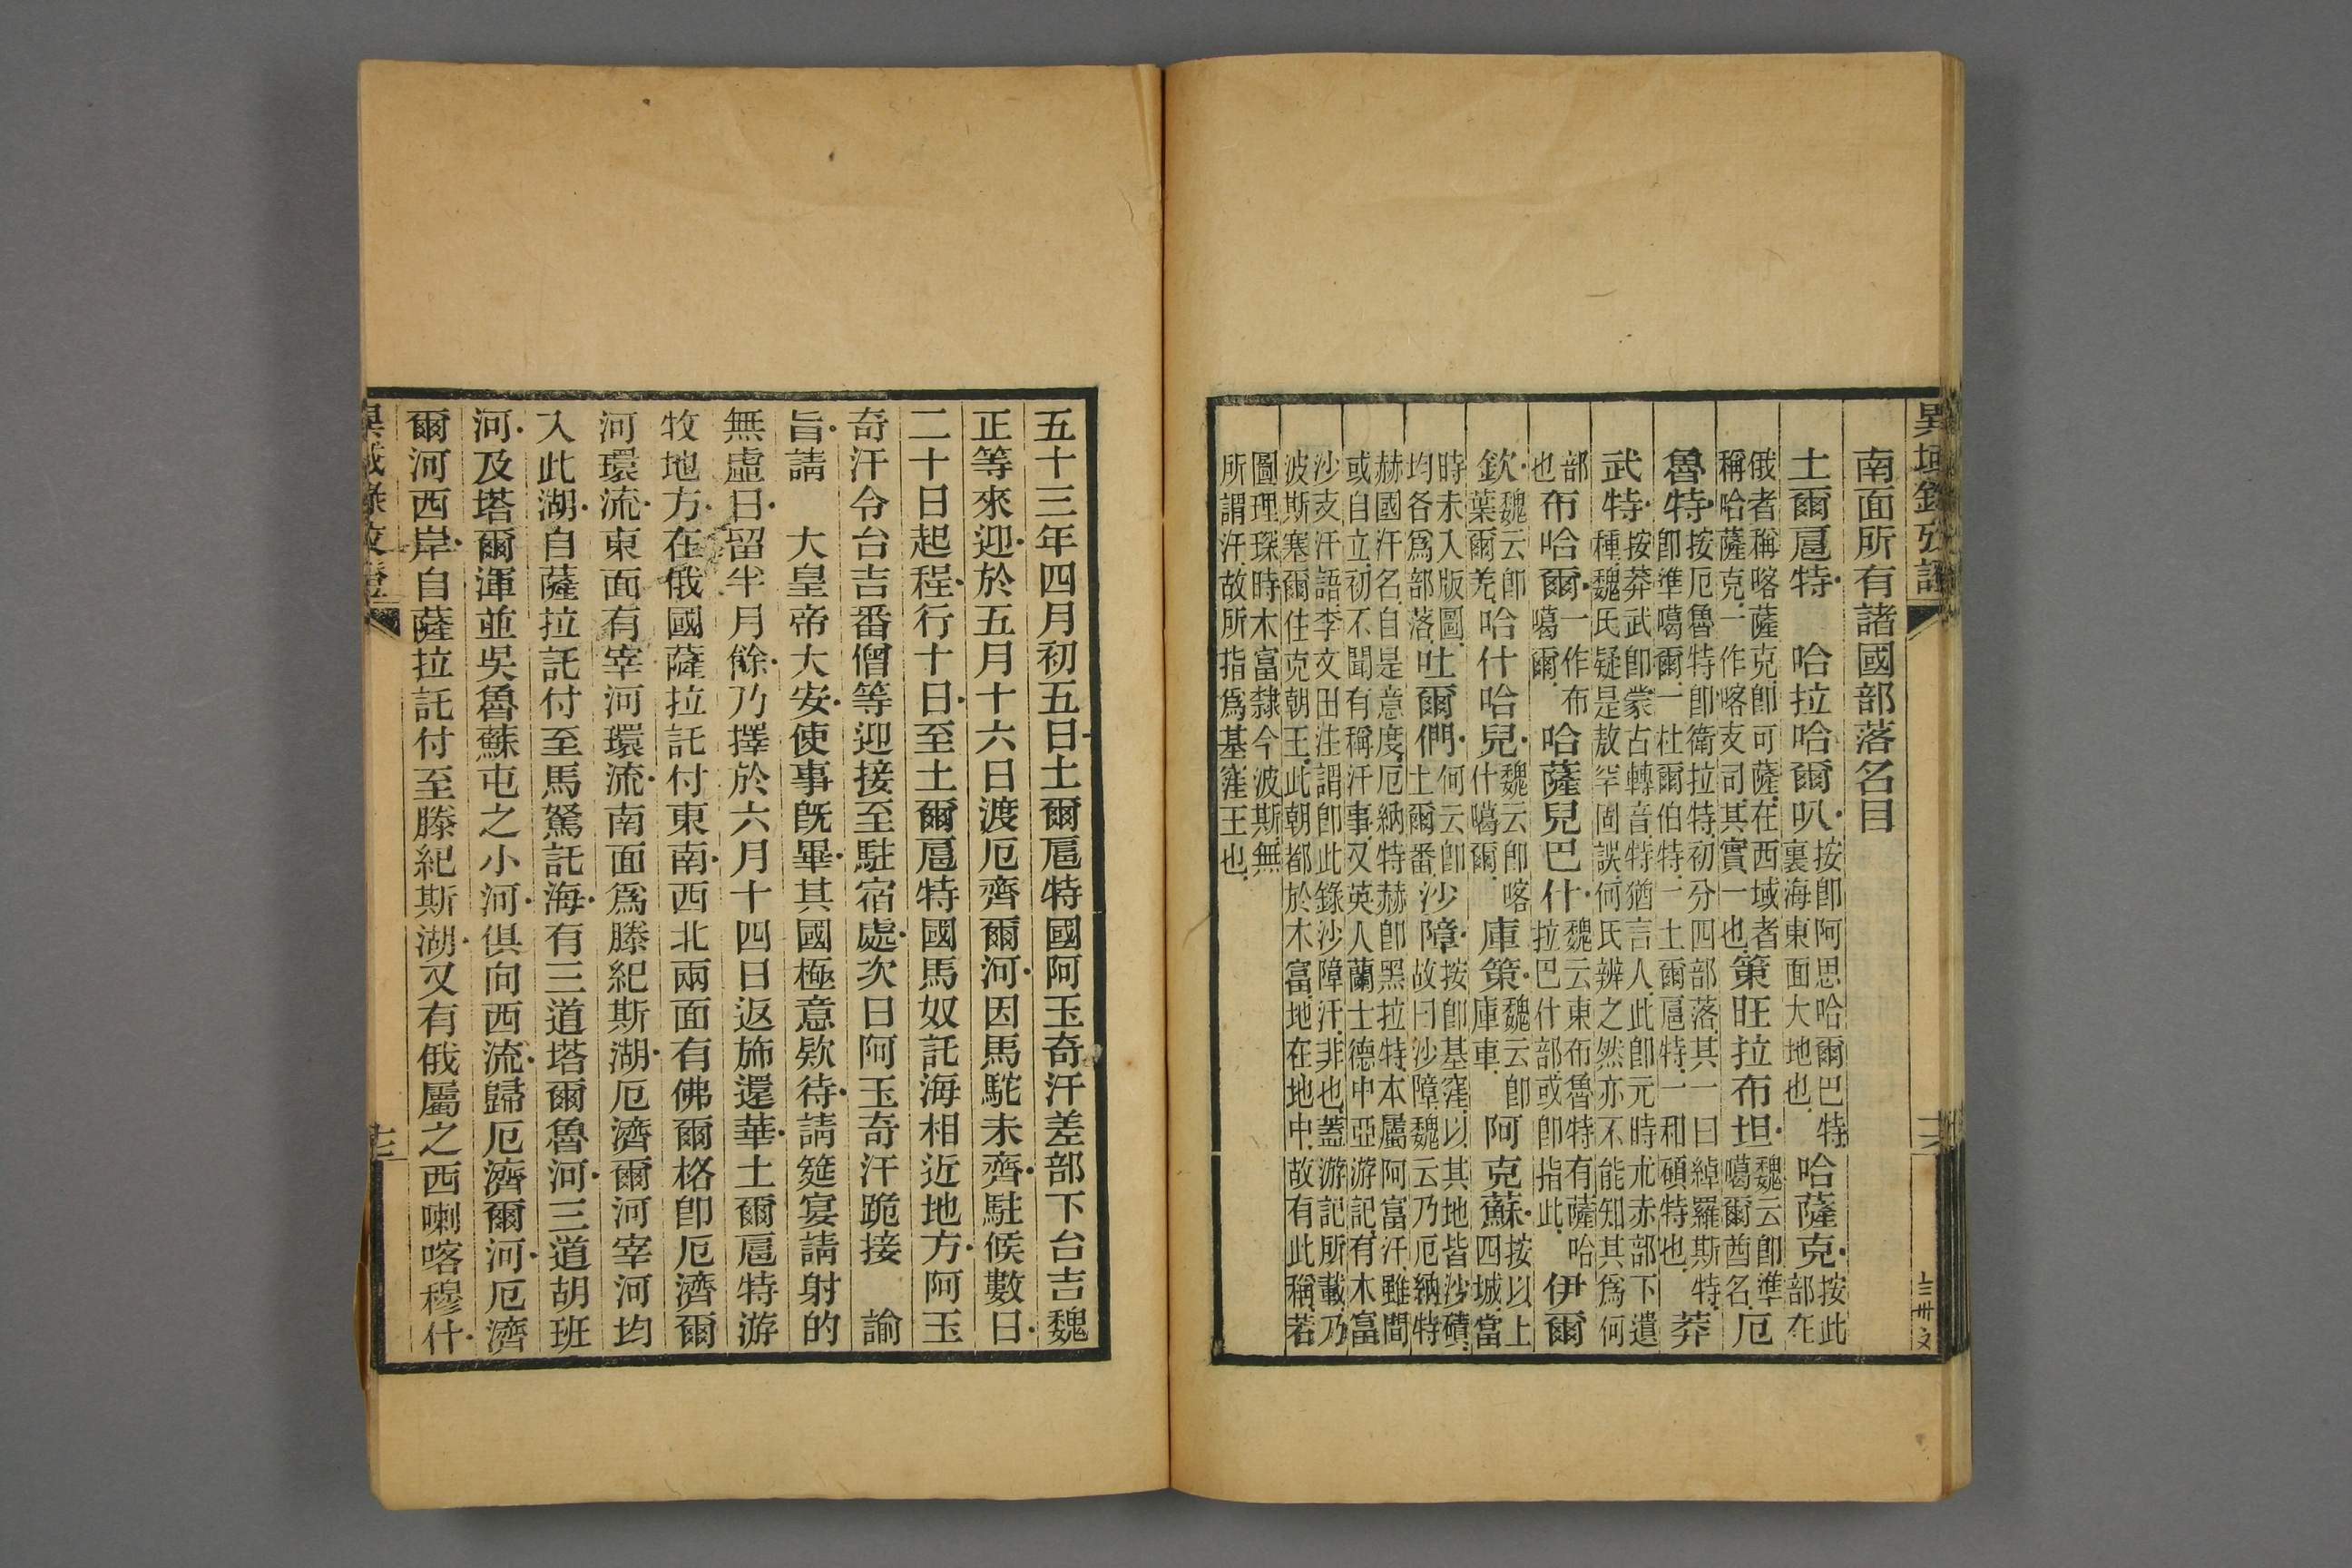 異域錄攷證
南面所有諸國部落名目
土爾扈特　哈拉哈爾叭
按即阿思哈爾巴特
裏海東面大地也
哈薩克
按此
部在
俄者稱喀薩克即可薩在西域者
稱哈薩克一作喀支司其實一也
策旺拉布坦
魏云即準
噶爾酋名
厄
魯特
按厄魯特即衛拉特初分四部落其一曰綽羅斯特
即準噶爾一杜爾伯特一土爾扈特一和碩特也
莽
武特
按莽武即蒙古轉音特猶言人此即元時朮赤部下遺
種魏氏疑是敖罕固誤何氏辨之然亦不能知其爲何
部
也
布哈爾
一作布
噶爾
哈薩兒巴什
魏云東布魯特有薩哈
拉巴什部或即指此
伊爾
欽
魏云即
葉爾羌
哈什哈兒
魏云即喀
什噶爾
庫策
魏云即
庫車
阿克蘇
按以上
四城當
時未入版圖
均各爲部落
吐爾們
何云即
土爾番
沙障
按即基窪以其地皆沙磧
故曰沙障魏云乃厄納特
赫國汗名自是意度厄納特赫即黑拉特本屬阿富汗雖間
或自立初不聞有稱汗事又英人蘭士德中亞游記有木富
沙支汗語李文田注謂即此錄沙障汗非也蓋游記所載乃
波斯塞爾住克朝王此朝都於木富地在地中故有此稱若
圖理琛時木富隸今波斯無
所謂汗故所指爲基窪王也
五十三年四月初五日土爾扈特國阿玉奇汗差部下台吉魏
正等來迎於五月十六日渡厄濟爾河因馬駝未齊駐候數日
二十日起程行十日至土爾扈特國馬奴託海相近地方阿玉
奇汗令台吉番僧等迎接至駐宿處次日阿玉奇汗跪接　諭
旨請　大皇帝大安使事旣畢其國極意欵待請筵宴請射的
無虛日留半月餘乃擇於六月十四日返斾還華土爾扈特游
牧地方在俄國薩拉託付東南西北兩面有佛爾格即厄濟爾
河環流東面有宰河環流南面爲滕紀斯湖厄濟爾河宰河均
入此湖自薩拉託付至馬駑託海有三道塔爾魯河三道胡班
河及塔爾渾並吳魯蘇屯之小河俱向西流歸厄濟爾河厄濟
爾河西岸自薩拉託付至滕紀斯湖又有俄屬之西喇喀穆什